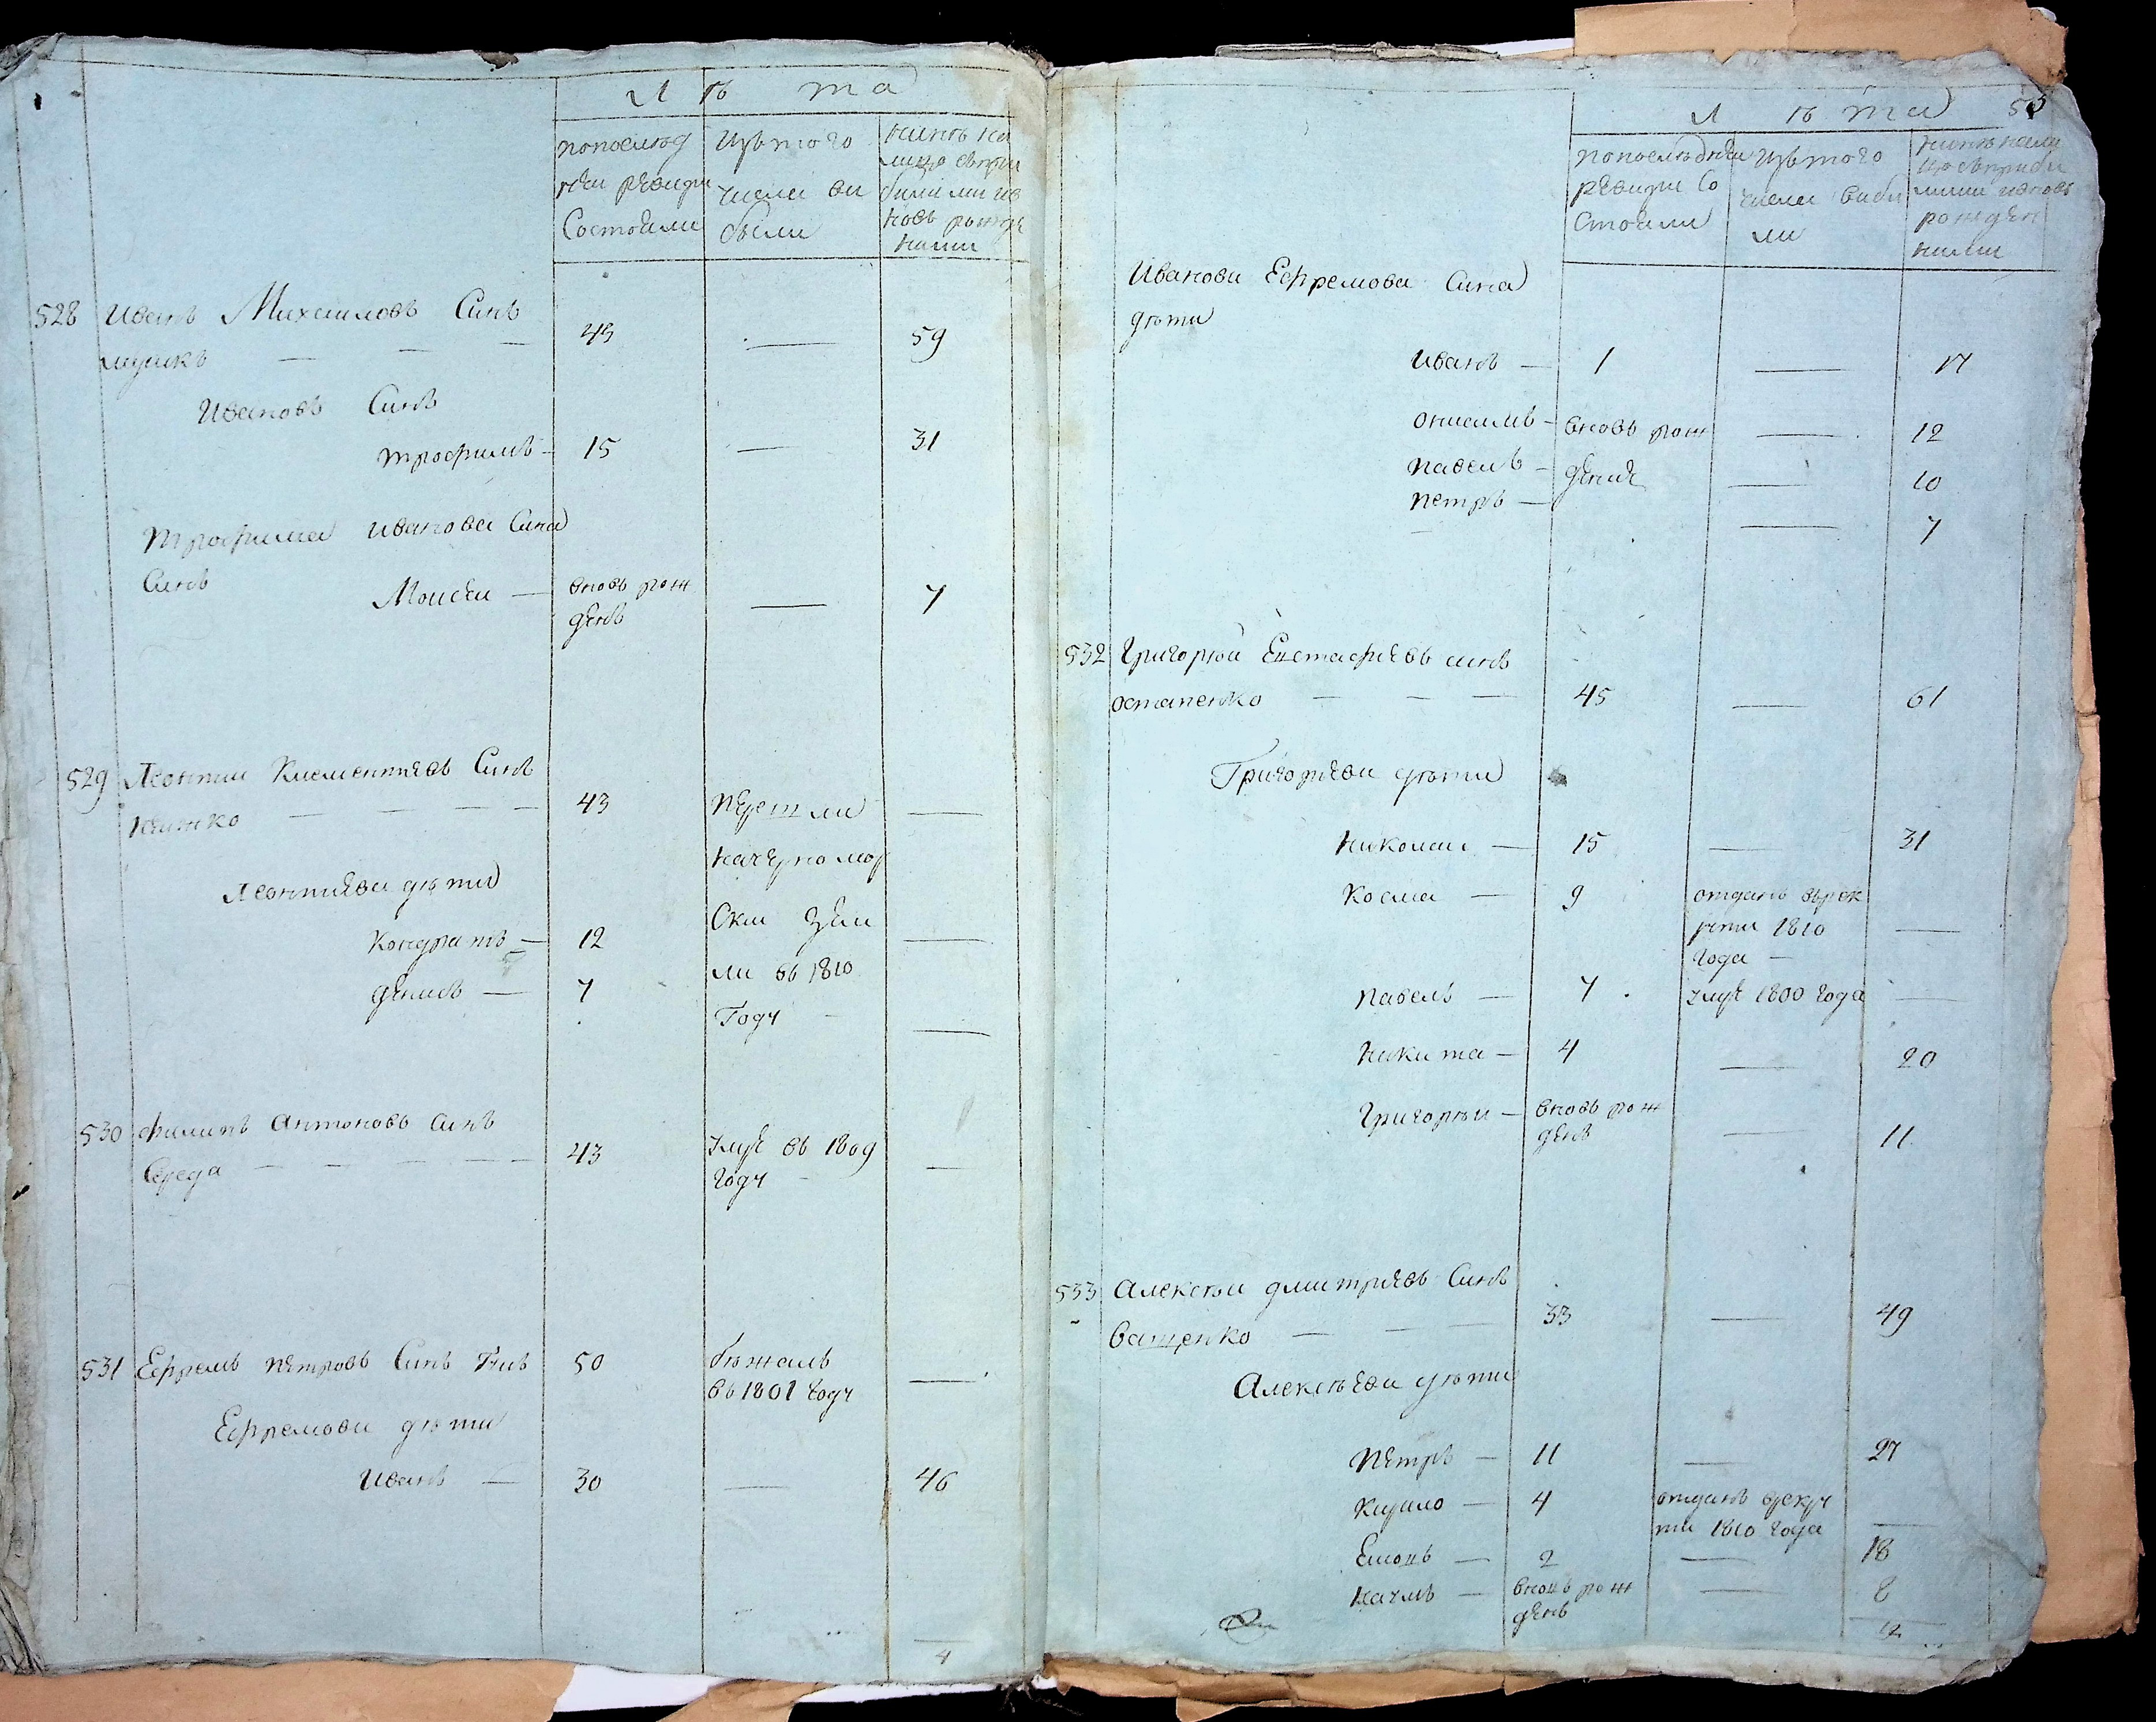 Лѣта
попослѣд
ней ревизи
Состояли
Изътого
числа ви
были
нинѣ на
лицо съпри
били ми ив
новь рожде
ними
528 Иванъ Михаиловъ Синъ 43 — 59
Ивановъ Синъ
трофимъ — 15 — 31
трофима иванова Сина
Синъ
Моисеи — вновь рож — 7
денъ
529 Леонтии Климентиевъ Синъ
43 перешли —
начерномор
Леонтиеви дѣти
Ски зем
Кондратъ — 12 —
ли въ 1810
денисъ — 7
Году —
530 филипъ Антоновъ Синъ
Середа — 43 умре въ 1809 —
году
531 Ефремъ петровъ Синъ 50 бѣжалъ —
въ 1801 году
Ефремови дѣти
Иванъ — 30 — 46
4
Лѣта
попослѣдней
ревизи Со
Стояли
Изътого
числа виби
ли
нинѣ нали
цо съприби
лими ивновь
рожден
ними
Иванови Ефремова Сина
дѣти
Иванъ — 1 — 17
онисимъ — вновь рож — 12
павелъ — дение — 10
петръ — — 7
532 Григорий Евстафиевъ синъ
остапенко — 45 — 61
Григориеви дѣти
николаи — 15 — 31
Косма — 9 отданъ върек
рути 1810 —
года —
павелъ — 7 умре 1800 года —
никита — 4 — 20
Григории — вновь рож
денъ — 11
533 Алексѣи дмитриевъ Синъ
ващенко — 33 — 49
Алексѣеви дѣти
Петръ — 11 — 27
Кирило — 4 отданъ врекру
ти 1810 года —
2 — 18
наумъ — вновь рож — 8
денъ
12